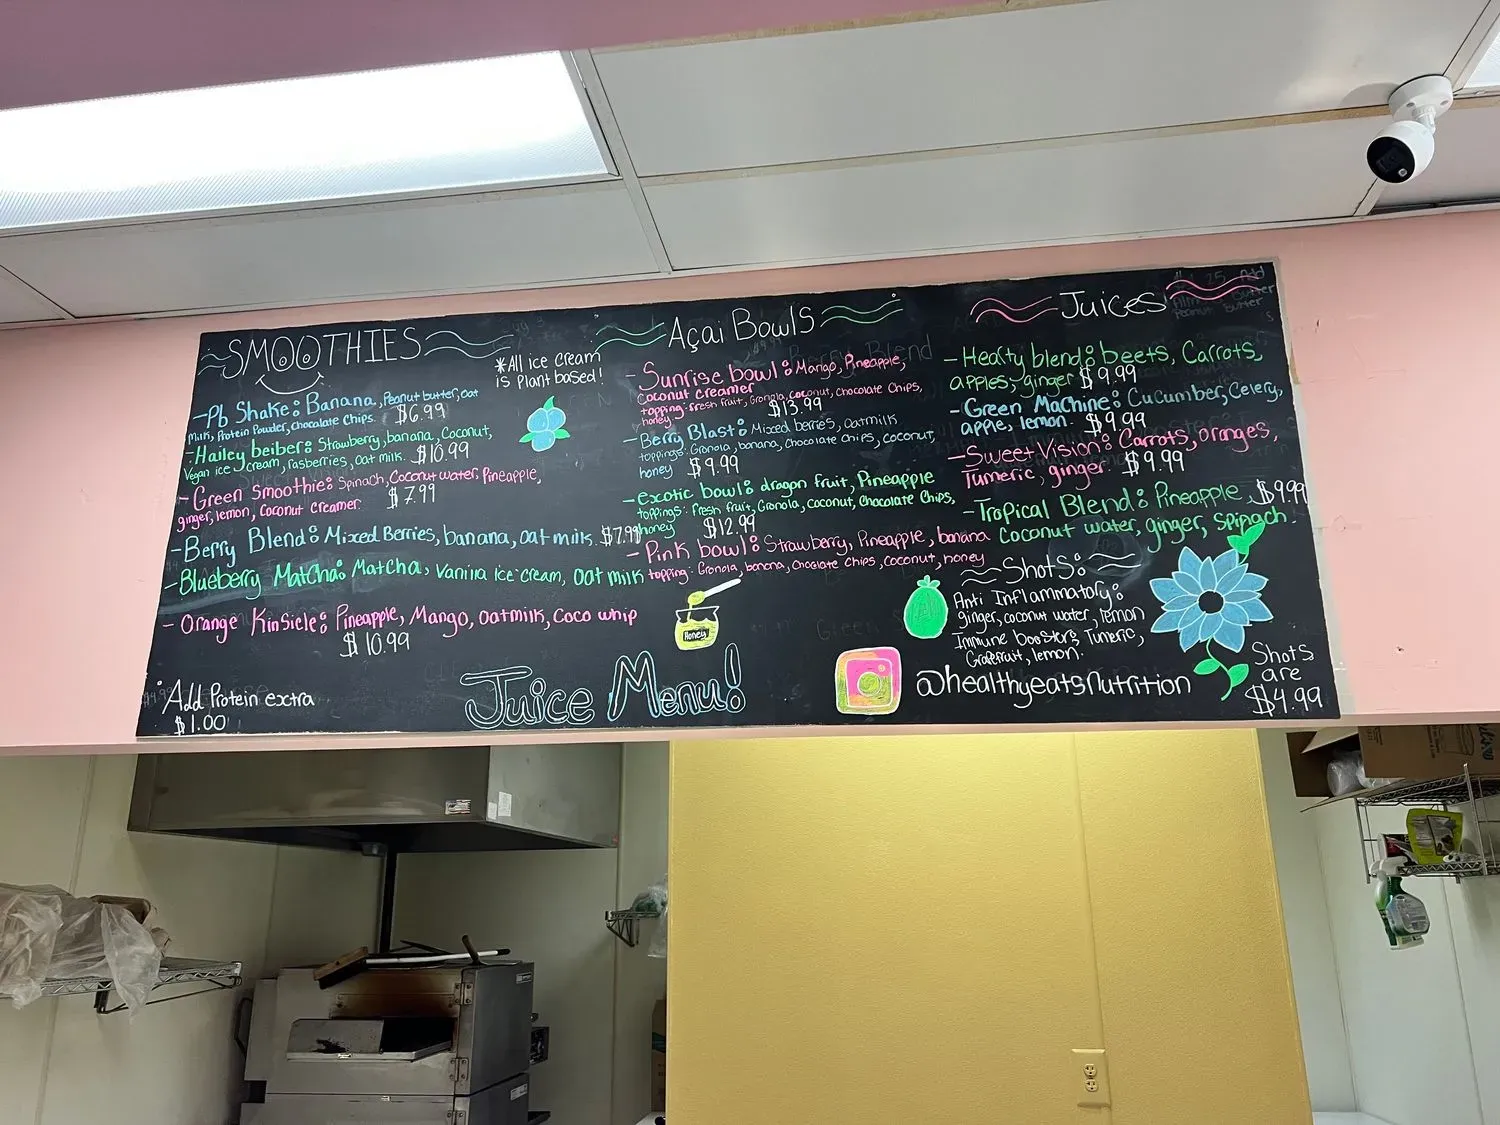 SMOOTHIES
*All ice cream
is Plant based!
-Pb Shake: Banana, Peanut butter, oat
milk, Protein Powder, Chocolate Chips. $6.99
-Hailey beiber: Strawberry, banana, Coconut,
Vegan ice cream, rasberries, oat milk. $10.99
-Green Smoothie: Spinach, Coconut water, Pineapple,
ginger, lemon, Coconut creamer. $7.99
-Berry Blend: Mixed Berries, banana, oat milk. $7.99
-Blueberry Matcha: Matcha, Vanilla ice cream, oat milk
- Orange Kinsicle: Pineapple, Mango, oatmilk, Coco whip
$10.99
Add Protein extra
$1.00
Açai Bowls
-Sunrise bowl: Mango, Pineapple,
Coconut creamer
topping: fresh fruit, Granola, coconut, Chocolate Chips,
honey $13.99
-Berry Blast: Mixed berries, oatmilk
toppings: Granola, banana, Chocolate chips, coconut,
honey $9.99
-exotic bowl: dragon fruit, Pineapple
toppings: Fresh fruit, Granola, coconut, Chocolate Chips,
honey $12.99
-Pink bowl: Strawberry, Pineapple, banana
topping: Granola, banana, Chocolate Chips, coconut, honey
Honey
Juice Menu!
Juices
-Healty blend: beets, Carrots,
apples, ginger $9.99
-Green Machine: Cucumber, Celery,
apple, lemon. $9.99
-Sweet Vision: Carrots, oranges,
Tumeric, ginger. $9.99
-Tropical Blend: Pineapple, $9.99
Coconut water, ginger, spinach.
Shots:
Anti Inflammatory:
ginger, coconut water, lemon
Immune booster: Tumeric,
Grapefruit, lemon.
@healthyeatsnutrition
Shots
are
$4.99